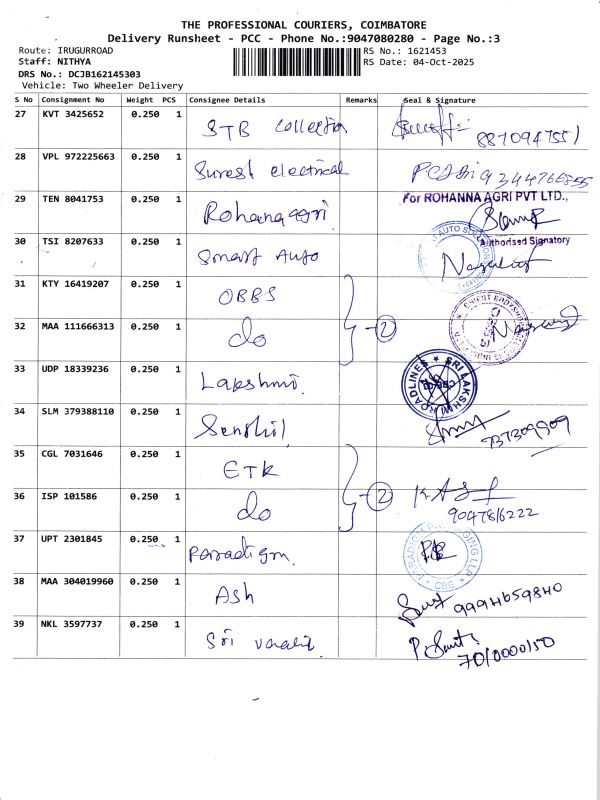 THE PROFESSIONAL COURIERS, COIMBATORE
Delivery Runsheet - PCC - Phone No.:9047080280 - Page No.:3
Route: IRUGURROAD
RS No.: 1621453
Staff: NITHYA
RS Date: 04-Oct-2025
DRS No.: DCJB162145303
Vehicle: Two Wheeler Delivery
S No Consignment No Weight PCS Consignee Details Remarks Seal & Signature
27 KVT 3425652 0.250 1 STB Collection
28 VPL 972225663 0.250 1 Suresh electrical
29 TEN 8041753 0.250 1 Rohana agri For ROHANNA AGRI PVT LTD.,
Authorised Signatory
30 TSI 8207633 0.250 1 Smart Auto
31 KTY 16419207 0.250 1 OBBS
32 MAA 111666313 0.250 1 do 2
33 UDP 18339236 0.250 1 Lakshmi SRI LAKSHMI ROADLINES
34 SLM 379388110 0.250 1 Senthil
35 CGL 7031646 0.250 1 ETK
36 ISP 101586 0.250 1 do 2
9047816222
37 UPT 2301845 0.250 1 Paradigm
CBE
38 MAA 304019960 0.250 1 Ash 9994659840
39 NKL 3597737 0.250 1 Sri